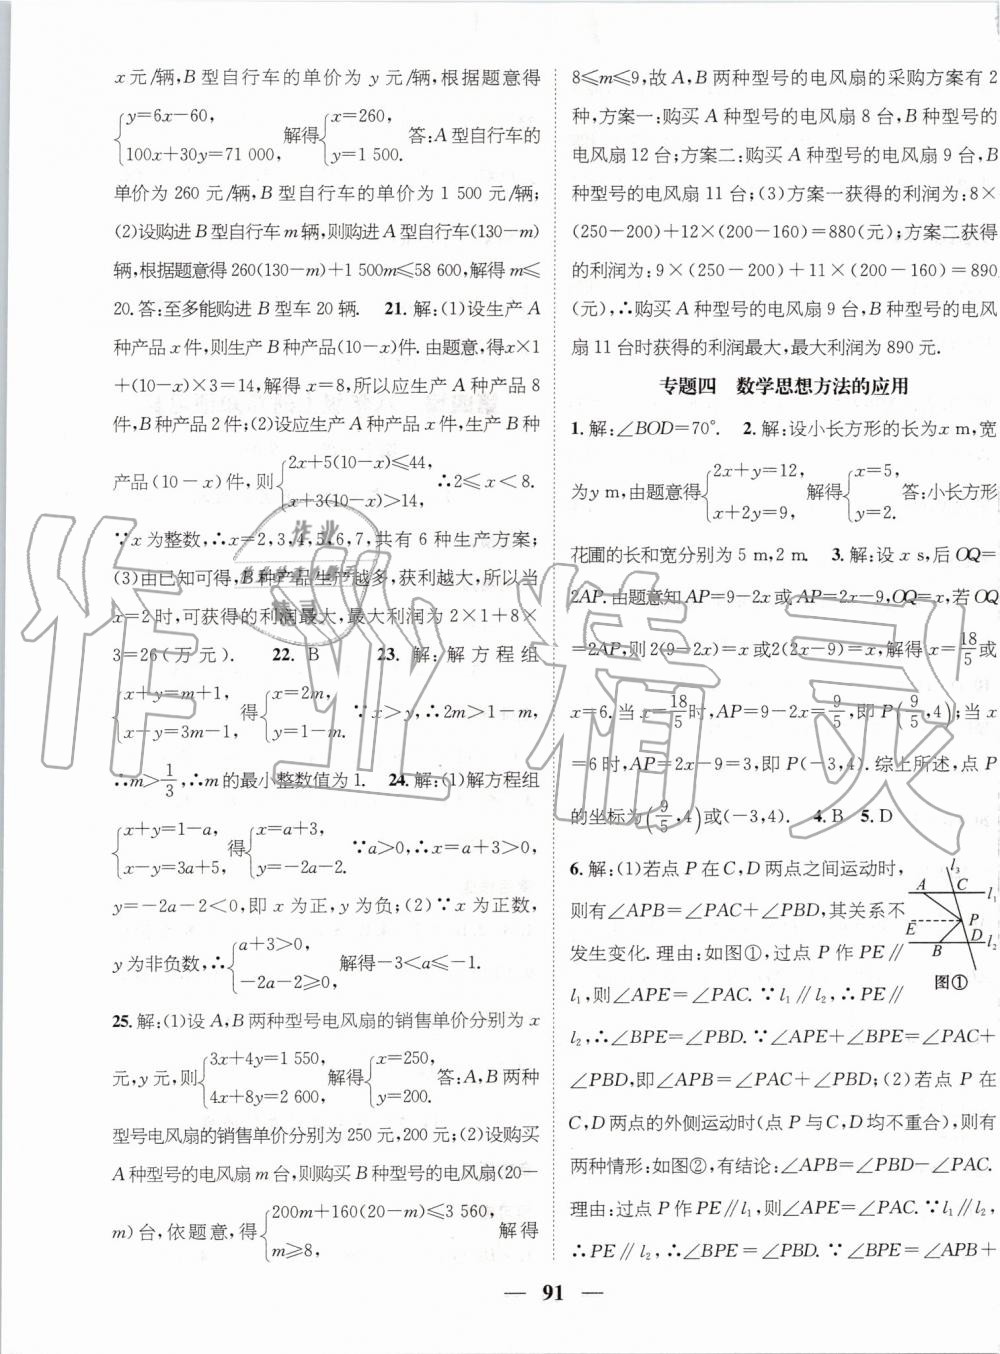 x 元/辆,B 型自行车的单价为 y 元/辆,根据题意得
{y=6x-60, 100x+30y=71 000, 解得{x=260, y=1 500. 答:A 型自行车的
单价为 260 元/辆,B 型自行车的单价为 1 500 元/辆;
(2)设购进 B 型自行车 m 辆,则购进 A 型自行车(130-m)
辆,根据题意得 260(130-m)+1 500m≤58 600,解得 m≤
20.答:至多能购进 B 型车 20 辆. 21.解:(1)设生产 A
种产品 x 件,则生产 B 种产品(10-x)件.由题意,得 x×1
+(10-x)×3=14,解得 x=8,所以应生产 A 种产品 8
件,B 种产品 2件;(2)设应生产 A 种产品 x 件,则生产 B 种
产品(10-x)件,则{2x+5(10-x)≤44, x+3(10-x)>14, ∴2≤x<8.
∵x 为整数,∴x=2,3,4,5,6,7,共有 6 种生产方案;
(3)由已知可得,B 种产品生产越多,获利越大,所以当
x=2 时,可获得的利润最大,最大利润为 2×1+8×
3=26(万元). 22. B 23. 解:解方程组
{x+y=m+1, x+y=3m-1, 得{x=2m, y=1-m. ∵x>y,∴2m>1-m,
∴m>1/3,∴m 的最小整数值为 1. 24. 解:(1)解方程组
{x+y=1-a, x-y=3a+5, 得{x=a+3, y=-2a-2. ∵a>0,∴x=a+3>0,
y=-2a-2<0,即 x 为正,y 为负;(2)∵x 为正数,
y 为非负数,∴{a+3>0, -2a-2≥0, 解得-3<a≤-1.
25.解:(1)设 A,B 两种型号电风扇的销售单价分别为 x
元,y 元,则{3x+4y=1 550, 4x+8y=2 600, 解得{x=250, y=200. 答:A,B 两种
型号电风扇的销售单价分别为 250 元,200 元;(2)设购买
A 种型号的电风扇 m 台,则购买 B 种型号的电风扇(20-
m)台,依题意,得{200m+160(20-m)≤3 560, m≥8, 解得
8≤m≤9,故 A,B 两种型号的电风扇的采购方案有 2
种,方案一:购买 A 种型号的电风扇 8 台,B 种型号的
电风扇 12 台;方案二:购买 A 种型号的电风扇 9 台,B
种型号的电风扇 11 台;(3)方案一获得的利润为:8×
(250-200)+12×(200-160)=880(元);方案二获得
的利润为:9×(250-200)+11×(200-160)=890
(元),∴购买 A 种型号的电风扇 9 台,B 种型号的电风
扇 11 台时获得的利润最大,最大利润为 890 元.
专题四 数学思想方法的应用
1.解:∠BOD=70°. 2.解:设小长方形的长为 x m,宽
为 y m,由题意得{2x+y=12, x+2y=9, 解得{x=5, y=2. 答:小长方形
花圃的长和宽分别为 5 m,2 m. 3.解:设 x s,后 OQ=
2AP.由题意知 AP=9-2x 或 AP=2x-9,OQ=x,若 OQ
=2AP,则 2(9-2x)=x 或 2(2x-9)=x,解得 x=18/5 或
x=6.当 x=18/5 时,AP=9-2x=9/5,即 P(9/5,4);当 x
=6 时,AP=2x-9=3,即 P(-3,4).综上所述,点 P
的坐标为(9/5,4)或(-3,4). 4. B 5. D
6.解:(1)若点 P 在 C,D 两点之间运动时,
则有∠APB=∠PAC+∠PBD,其关系不
发生变化.理由:如图①,过点 P 作 PE∥
l1,则∠APE=∠PAC.∵l1∥l2,∴PE∥
l2,∴∠BPE=∠PBD.∵∠APE+∠BPE=∠PAC+
∠PBD,即∠APB=∠PAC+∠PBD;(2)若点 P 在
C,D 两点的外侧运动时(点 P 与 C,D 均不重合),则有
两种情形:如图②,有结论:∠APB=∠PBD-∠PAC.
理由:过点 P 作 PE∥l1,则∠APE=∠PAC.∵l1∥l2,
∴PE∥l2,∴∠BPE=∠PBD.∵∠BPE=∠APB+
l3
A C l1
E P
B D l2
图①
— 91 —
作业精灵
作业
精灵